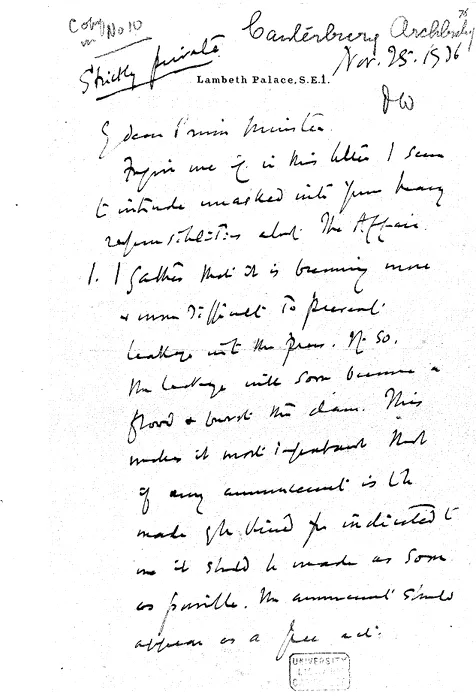 Copy
in No 10
76
Canterbury Archbishop
Strictly private
Nov. 25. 1936
Lambeth Palace, S.E.1.
DW
My dear Prime Minister
Forgive me if in this letter I seem
to intrude unasked into your heavy
responsibilities about The Affair.
1. I gather that it is becoming more
& more difficult to prevent
leakage into the press. If so,
the leakage will soon become a
flood & burst the dam. This
makes it most important that
if any announcement is to be
made of the kind you indicated to
me it should be made as soon
as possible. The announcement should
appear as a free act.
UNIVERSITY
LIBRARY